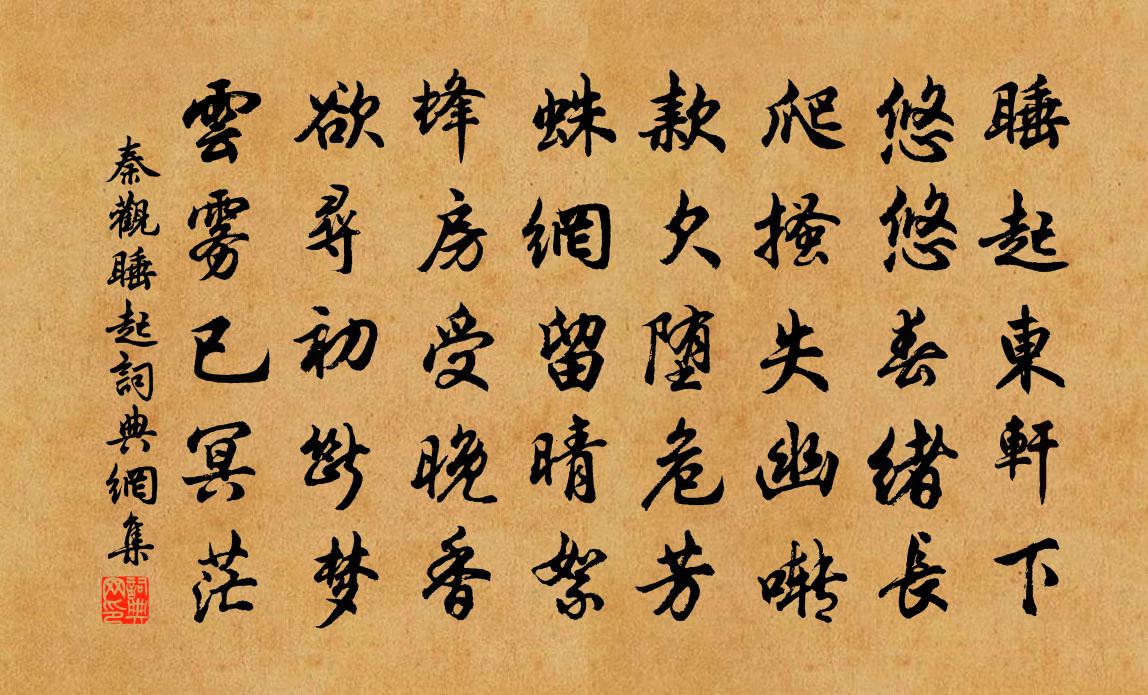 睡起東軒下
悠悠春緒長
爬搔失幽囀
款欠墮危芳
蛛網留晴絮
蜂房受晚香
欲尋初斷夢
雲雾已冥茫
秦觀睡起詞典網集
詞典
网印